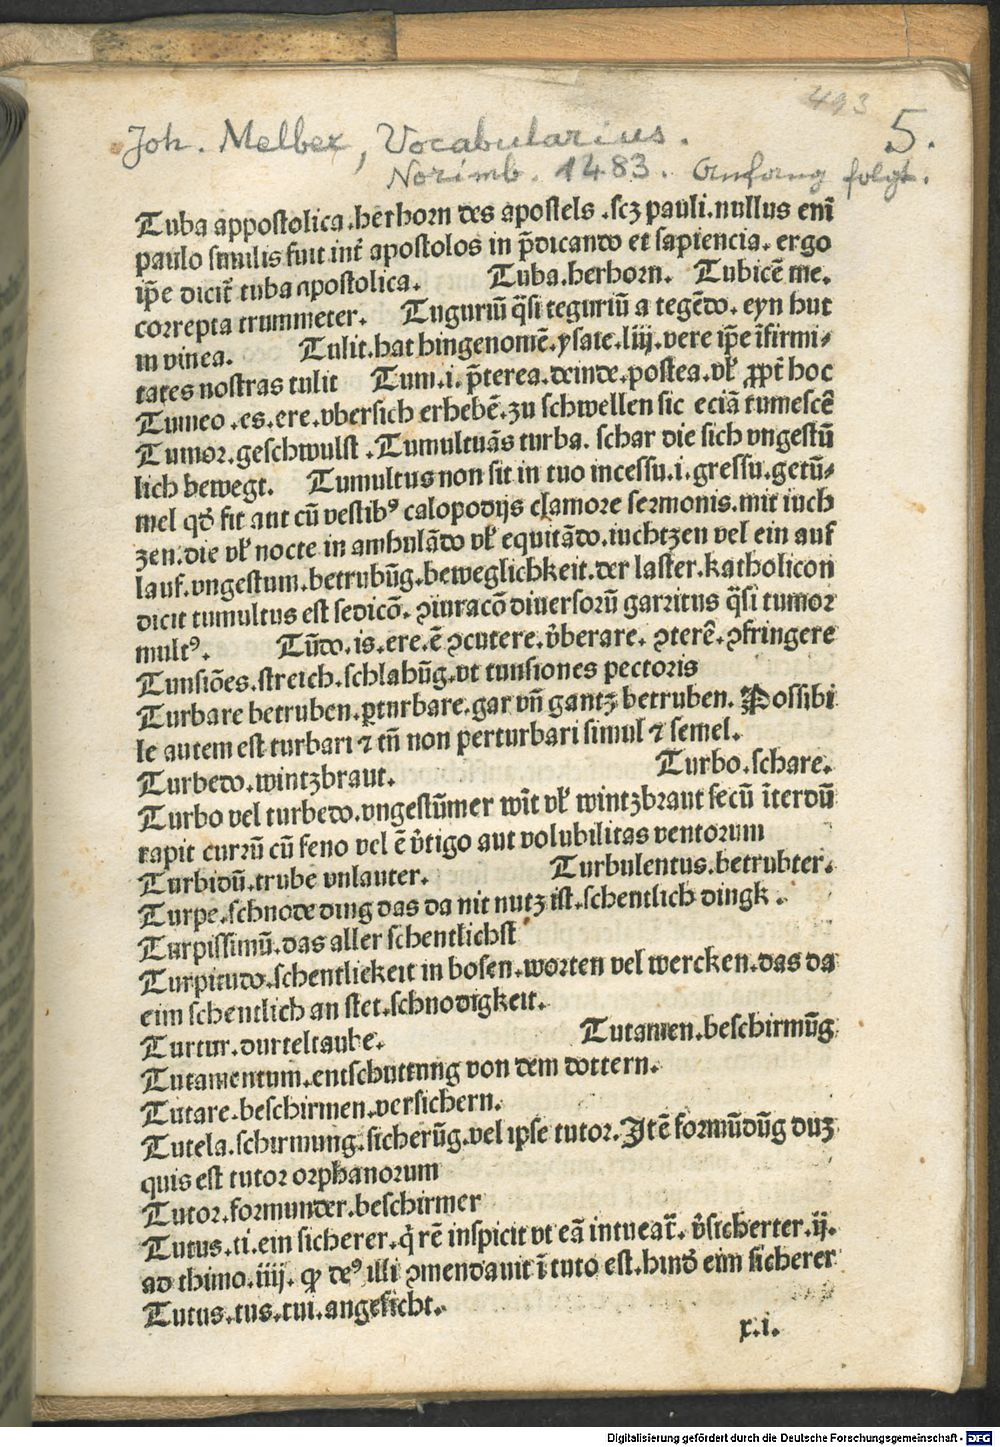 493
5.
Joh. Melber, Vocabularius.
Norimb. 1483. Anfang folgt.
Tuba appostolica.herhorn des apostels .scz pauli.nullus eni̅
paulo similis fuit int̅ apostolos in p̅dicando et sapiencia. ergo
ip̅e dicit̅ tuba apostolica. Tuba.herhorn. Tubice̅ me.
correpta trummeter. Tuguriu̅ q̅si teguriu̅ a tege̅do. eyn hut
in vinea. Tulit.hat hingenome̅.ysaie.liij.vere ip̅e i̅firmi⸗
tates nostras tulit Tum.i.p̅terea.deinde.postea.vl̕ ꝓpt̅ hoc
Tumeo .es.ere.vbersich erhebe̅.zu schwellen sic ecia̅ tumesce̅
Tumor.geschwulst .Tumultua̅s turba. schar die sich vngestu̅
lich bewegt. Tumultus non sit in tuo incessu.i.gressu.getu̅⸗
mel qd̕ fit aut cu̅ vestibꝰ calopodijs clamore sermonis.mit iuch
zen.die vl̕ nocte in ambula̅do vl̕ equita̅do.iuchtzen vel ein auf
lauf.vngestum.betrubu̅g.beweglichkeit.der laster.katholicon
dicit tumultus est sedico̅. ꝯiuraco̅ diuersoru̅ garritus q̅si tumor
multꝰ. Tu̅do.is.ere.e̅ ꝑcutere.v̕berare. ꝯtere̅.ꝯfringere
Tunsio̅es.streich.schlahu̅g.vt tunsiones pectoris
Turbare betruben.ꝑturbare.gar vn̅ gantz betruben. Possibi
le autem est turbari ⁊ tn̅ non perturbari simul ⁊ semel.
Turbedo.wintzbraut. Turbo.schare.
Turbo vel turbedo.vngestu̅mer wi̅t vl̕ wintzbraut secu̅ i̅terdu̅
rapit curru̅ cu̅ feno vel e̅ v̕tigo aut volubilitas ventorum
Turbidu̅.trube vnlauter. Turbulentus.betrubter.
Turpe.schnode ding das da nit nutz ist.schentlich dingk .
Turpissimu̅.das aller schentlichst
Turpitudo.schentliekeit in bosen.worten vel wercken.das da
eim schentlich an stet.schnodigkeit.
Turtur.durteltaube. Tutamen.beschirmu̅g
Tutamentum.entschuttung von dem dottern.
Tutare.beschirmen.versichern.
Tutela.schirmung.sicheru̅g.vel ipse tutor.Ite̅ formu̅du̅g duz
quis est tutor orphanorum
Tutor.formunder.beschirmer
Tutus.ti.ein sicherer.q̕ re̅ inspicit vt ea̅ intueat̅. v̕sicherter.ij.
ad thimo.iiij. ꝙ deꝰ illi ꝯmendauit i̅ tuto est.hind̕ eim sicherer
Tutus.tus.tui.angesicht.
x.i.
Digitalisierung gefördert durch die Deutsche Forschungsgemeinschaft - DFG